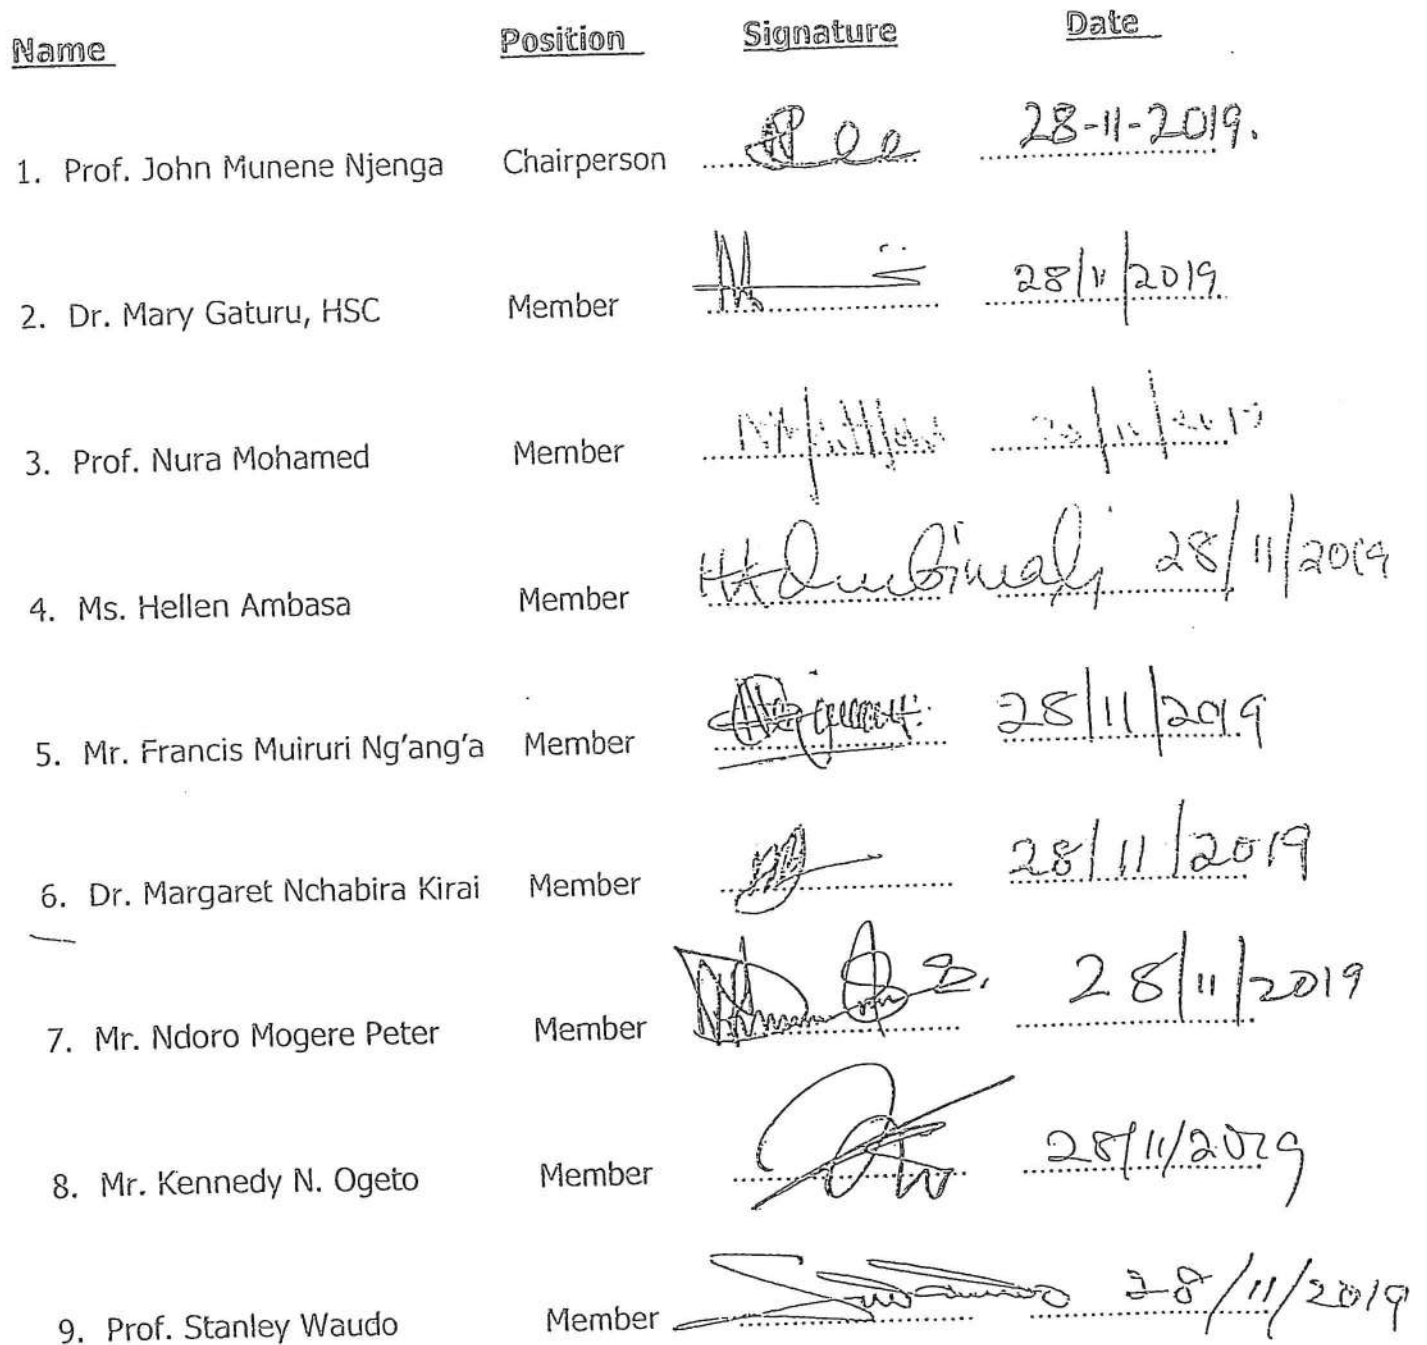 Name Position Signature Date
1. Prof. John Munene Njenga Chairperson 28-11-2019.
2. Dr. Mary Gaturu, HSC Member 28/11/2019
3. Prof. Nura Mohamed Member 28/11/2019
4. Ms. Hellen Ambasa Member 28/11/2019
5. Mr. Francis Muiruri Ng'ang'a Member 28/11/2019
6. Dr. Margaret Nchabira Kirai Member 28/11/2019
7. Mr. Ndoro Mogere Peter Member 28/11/2019
8. Mr. Kennedy N. Ogeto Member 28/11/2019
9. Prof. Stanley Waudo Member 28/11/2019